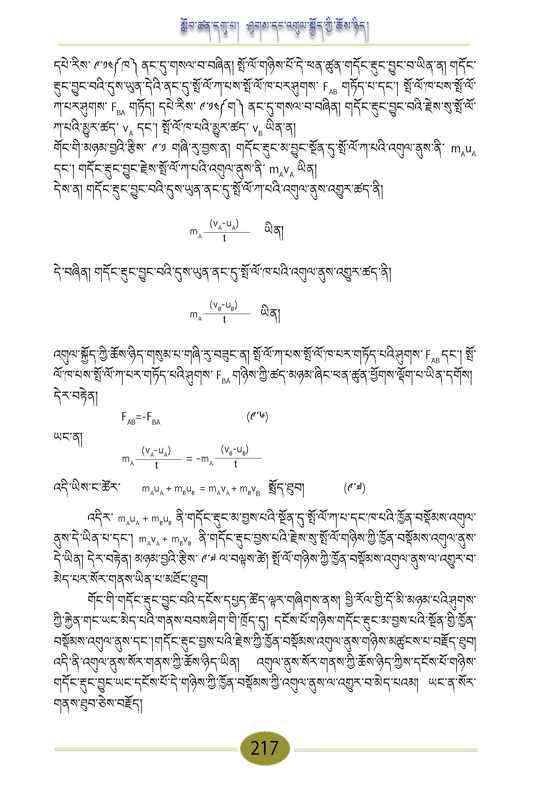 སློབ་ཚན་དགུ་པ། ཤུགས་དང་འགུལ་སྐྱོད་ཀྱི་ཆོས་ཉིད།
དཔེ་རིས་ ༩་༡༤(ཁ) ནང་དུ་གསལ་བ་བཞིན། སྤོ་ལོ་གཉིས་པོ་དེ་ཕན་ཚུན་གདོང་རྡུང་བྱུང་བ་ཡིན་ན། གདོང་
རྡུང་བྱུང་བའི་དུས་ཡུན་དེའི་ནང་དུ་སྤོ་ལོ་ཀ་པས་སྤོ་ལོ་ཁ་པར་ཤུགས་ F_AB གཏོད་པ་དང་། སྤོ་ལོ་ཁ་པས་སྤོ་ལོ་
ཀ་པར་ཤུགས་ F_BA གཏོད། དཔེ་རིས་ ༩་༡༤(ག) ནང་དུ་གསལ་བ་བཞིན། གདོང་རྡུང་བྱུང་བའི་རྗེས་སུ་སྤོ་ལོ་
ཀ་པའི་མྱུར་ཚད་ v_A དང་། སྤོ་ལོ་ཁ་པའི་མྱུར་ཚད་ v_B ཡིན་ན།
གོང་གི་མཉམ་བྱའི་རྩིས་ ༩་༡ གཞི་རུ་བྱས་ན། གདོང་རྡུང་མ་བྱུང་སྔོན་དུ་སྤོ་ལོ་ཀ་པའི་འགུལ་ནུས་ནི་ m_Au_A
དང་། གདོང་རྡུང་བྱུང་རྗེས་སྤོ་ལོ་ཀ་པའི་འགུལ་ནུས་ནི་ m_Av_A ཡིན།
དེས་ན། གདོང་རྡུང་བྱུང་བའི་དུས་ཡུན་ནང་དུ་སྤོ་ལོ་ཀ་པའི་འགུལ་ནུས་འགྱུར་ཚད་ནི།
m_A (v_A-u_A)/t ཡིན།
དེ་བཞིན། གདོང་རྡུང་བྱུང་བའི་དུས་ཡུན་ནང་དུ་སྤོ་ལོ་ཁ་པའི་འགུལ་ནུས་འགྱུར་ཚད་ནི།
m_A (v_B-u_B)/t ཡིན།
འགུལ་སྐྱོད་ཀྱི་ཆོས་ཉིད་གསུམ་པ་གཞི་རུ་བཟུང་ན། སྤོ་ལོ་ཀ་པས་སྤོ་ལོ་ཁ་པར་གཏོད་པའི་ཤུགས་ F_AB དང་། སྤོ་
ལོ་ཁ་པས་སྤོ་ལོ་ཀ་པར་གཏོད་པའི་ཤུགས་ F_BA གཉིས་ཀྱི་ཚད་མཉམ་ཞིང་ཕན་ཚུན་ཕྱོགས་ལྡོག་པ་ཡིན་དགོས།
དེར་བརྟེན།
F_AB=-F_BA (༩་༦)
ཡང་ན།
m_A (v_A-u_A)/t = -m_A (v_B-u_B)/t
འདི་ཡིས་ང་ཚོར་ m_Au_A + m_Bu_B = m_Av_A + m_Bv_B སྤྲོད་ཐུབ། (༩་༧)
འདིར་ m_Au_A + m_Bu_B ནི་གདོང་རྡུང་མ་བྱས་པའི་སྔོན་དུ་སྤོ་ལོ་ཀ་པ་དང་ཁ་པའི་ཁྱོན་བསྡོམས་འགུལ་
ནུས་དེ་ཡིན་པ་དང་། m_Av_A + m_Bv_B ནི་གདོང་རྡུང་བྱས་པའི་རྗེས་སུ་སྤོ་ལོ་གཉིས་ཀྱི་ཁྱོན་བསྡོམས་འགུལ་ནུས་
དེ་ཡིན། དེར་བརྟེན། མཉམ་བྱའི་རྩིས་ ༩་༧ ལ་བལྟས་ཚེ། སྤོ་ལོ་གཉིས་ཀྱི་ཁྱོན་བསྡོམས་འགུལ་ནུས་ལ་འགྱུར་བ་
མེད་པར་སོར་གནས་ཡིན་པ་མཐོང་ཐུབ།
གོང་གི་གདོང་རྡུང་བྱུང་བའི་དངོས་དཔྱད་ཚོད་ལྟར་གཞིགས་ནས། ཕྱི་རོལ་གྱི་དོ་མི་མཉམ་པའི་ཤུགས་
ཀྱི་རྐྱེན་གང་ཡང་མེད་པའི་གནས་བབས་ཤིག་གི་ཁྲོད་དུ། དངོས་པོ་གཉིས་གདོང་རྡུང་མ་བྱས་པའི་སྔོན་གྱི་ཁྱོན་
བསྡོམས་འགུལ་ནུས་དང་། གདོང་རྡུང་བྱས་པའི་རྗེས་ཀྱི་ཁྱོན་བསྡོམས་འགུལ་ནུས་གཉིས་མཚུངས་པ་བརྗོད་ཐུབ།
འདི་ནི་འགུལ་ནུས་སོར་གནས་ཀྱི་ཆོས་ཉིད་ཡིན། འགུལ་ནུས་སོར་གནས་ཀྱི་ཆོས་ཉིད་ཀྱིས་དངོས་པོ་གཉིས་
གདོང་རྡུང་བྱུང་ཡང་དངོས་པོ་དེ་གཉིས་ཀྱི་ཁྱོན་བསྡོམས་ཀྱི་འགུལ་ནུས་ལ་འགྱུར་བ་མེད་པའམ། ཡང་ན་སོར་
གནས་ཐུབ་ཅེས་བརྗོད།
217